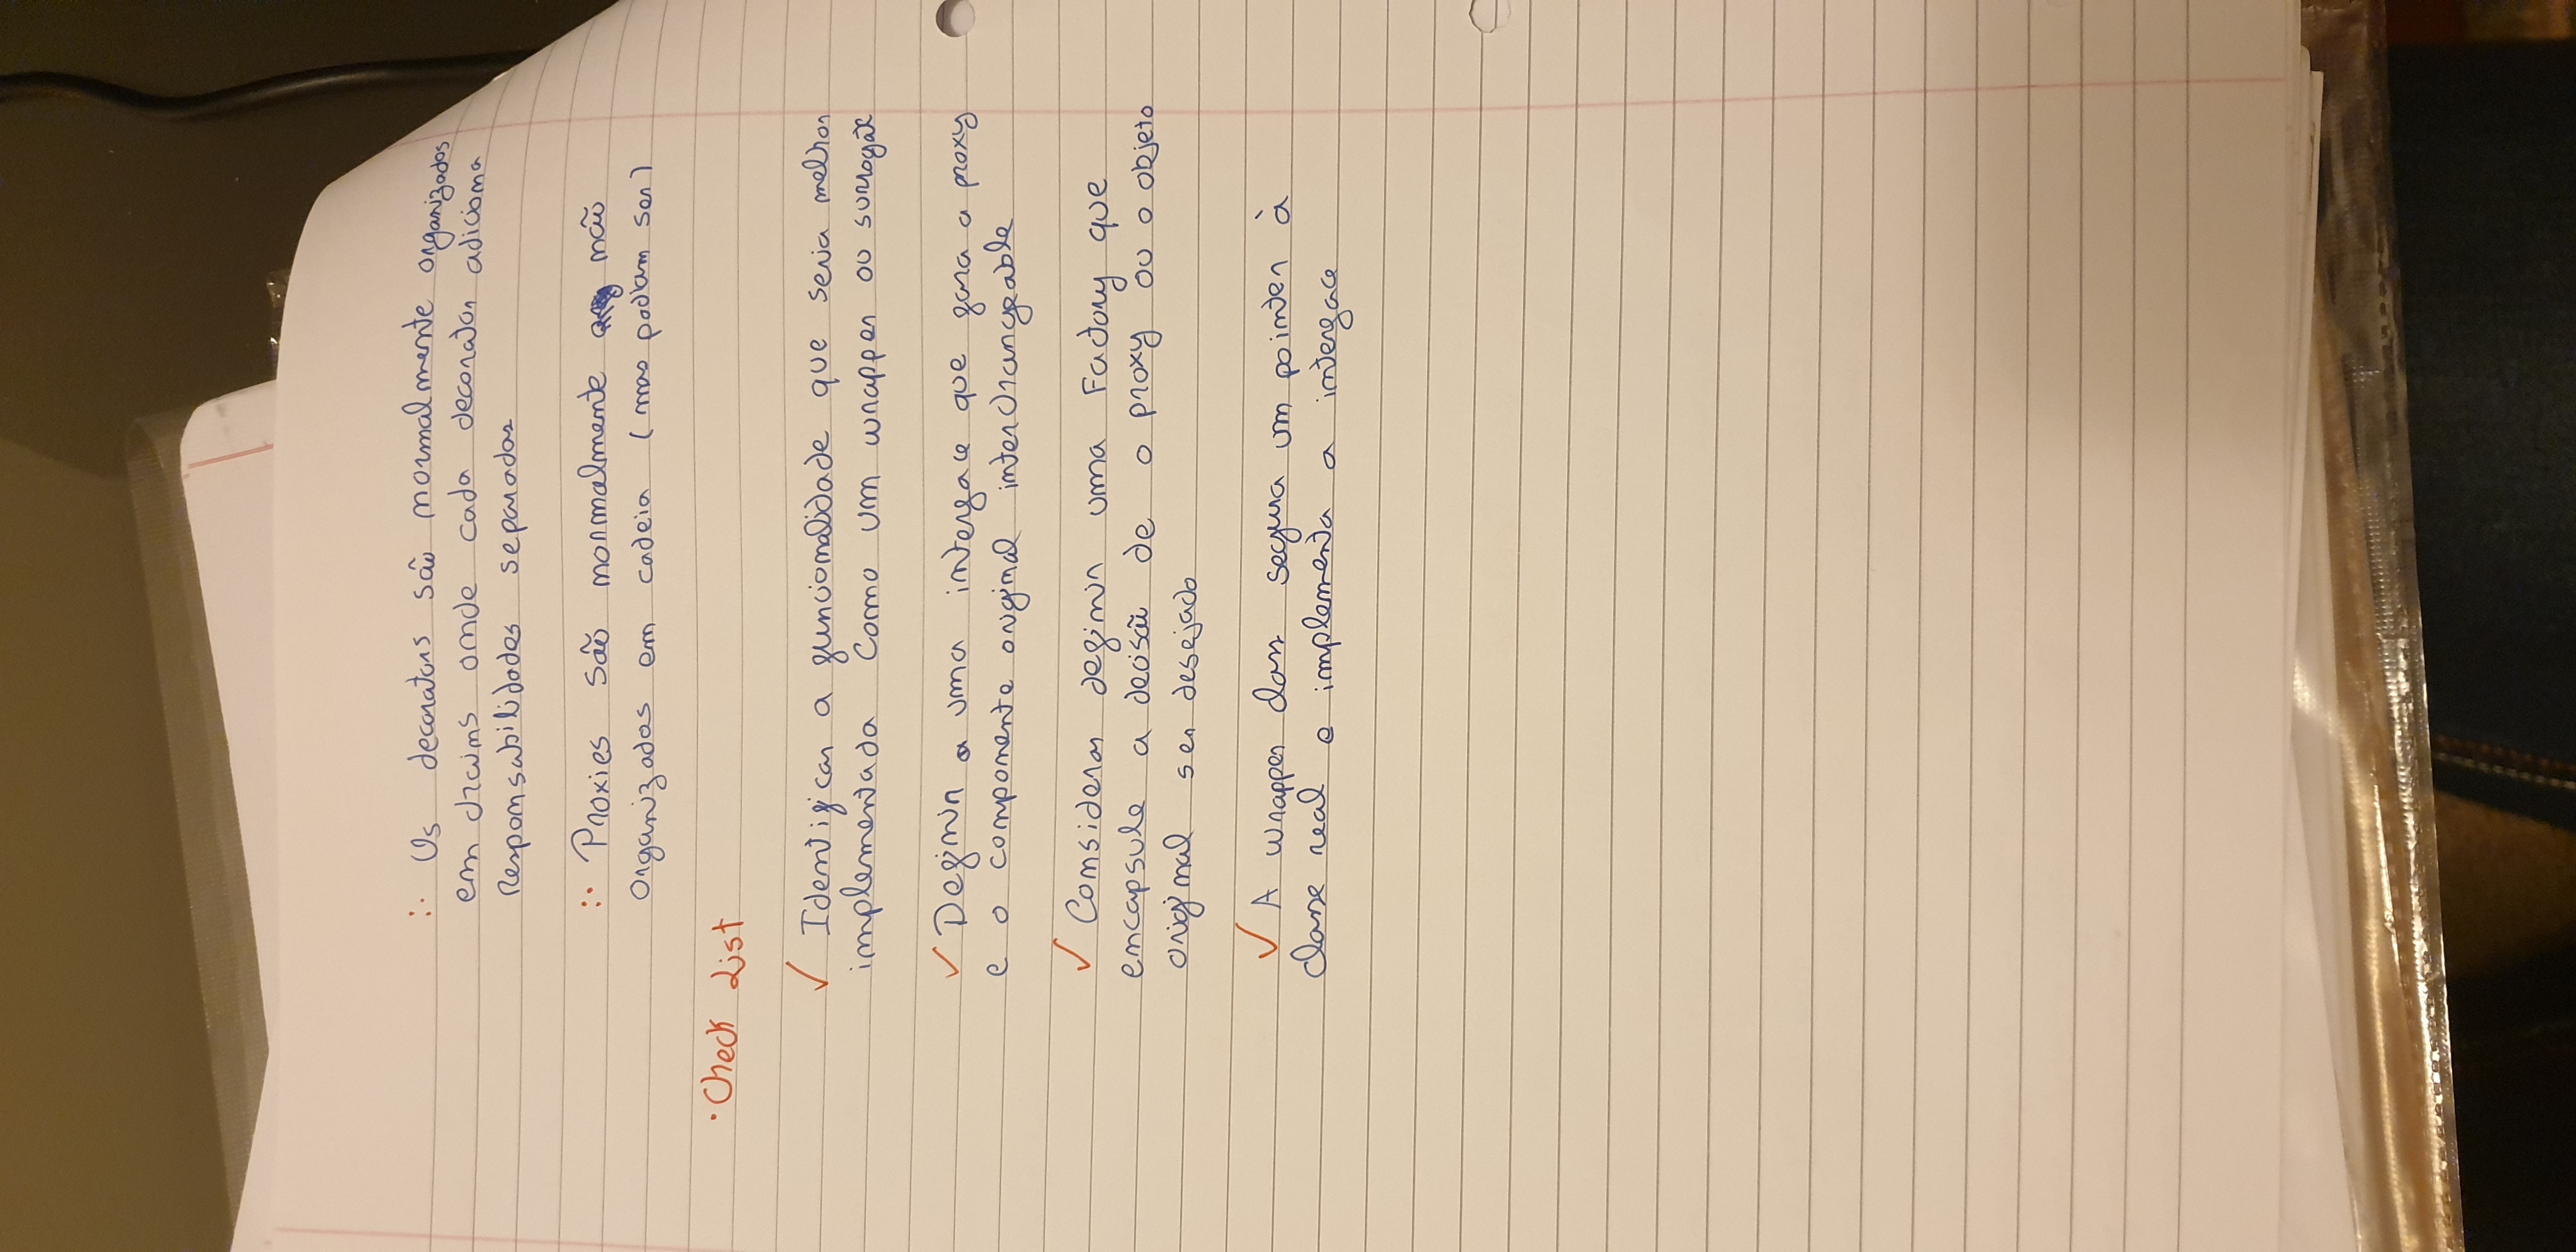 ∴ Os decorators são normalmente organizados
em chains onde cada decorator adiciona
responsabilidades separadas
∴ Proxies são normalmente não
organizados em cadeia (mas podiam ser)
• Check List
✓ Identificar a funcionalidade que seria melhor
implementada como um wrapper ou surrogate
✓ Definir a uma interface que fara a proxy
e o componente original interchangeable
✓ Considerar definir uma Factory que
encapsule a decisão de o proxy ou o objeto
original ser desejado
✓ A wrapper class segura um pointer à
classe real e implementa a interface